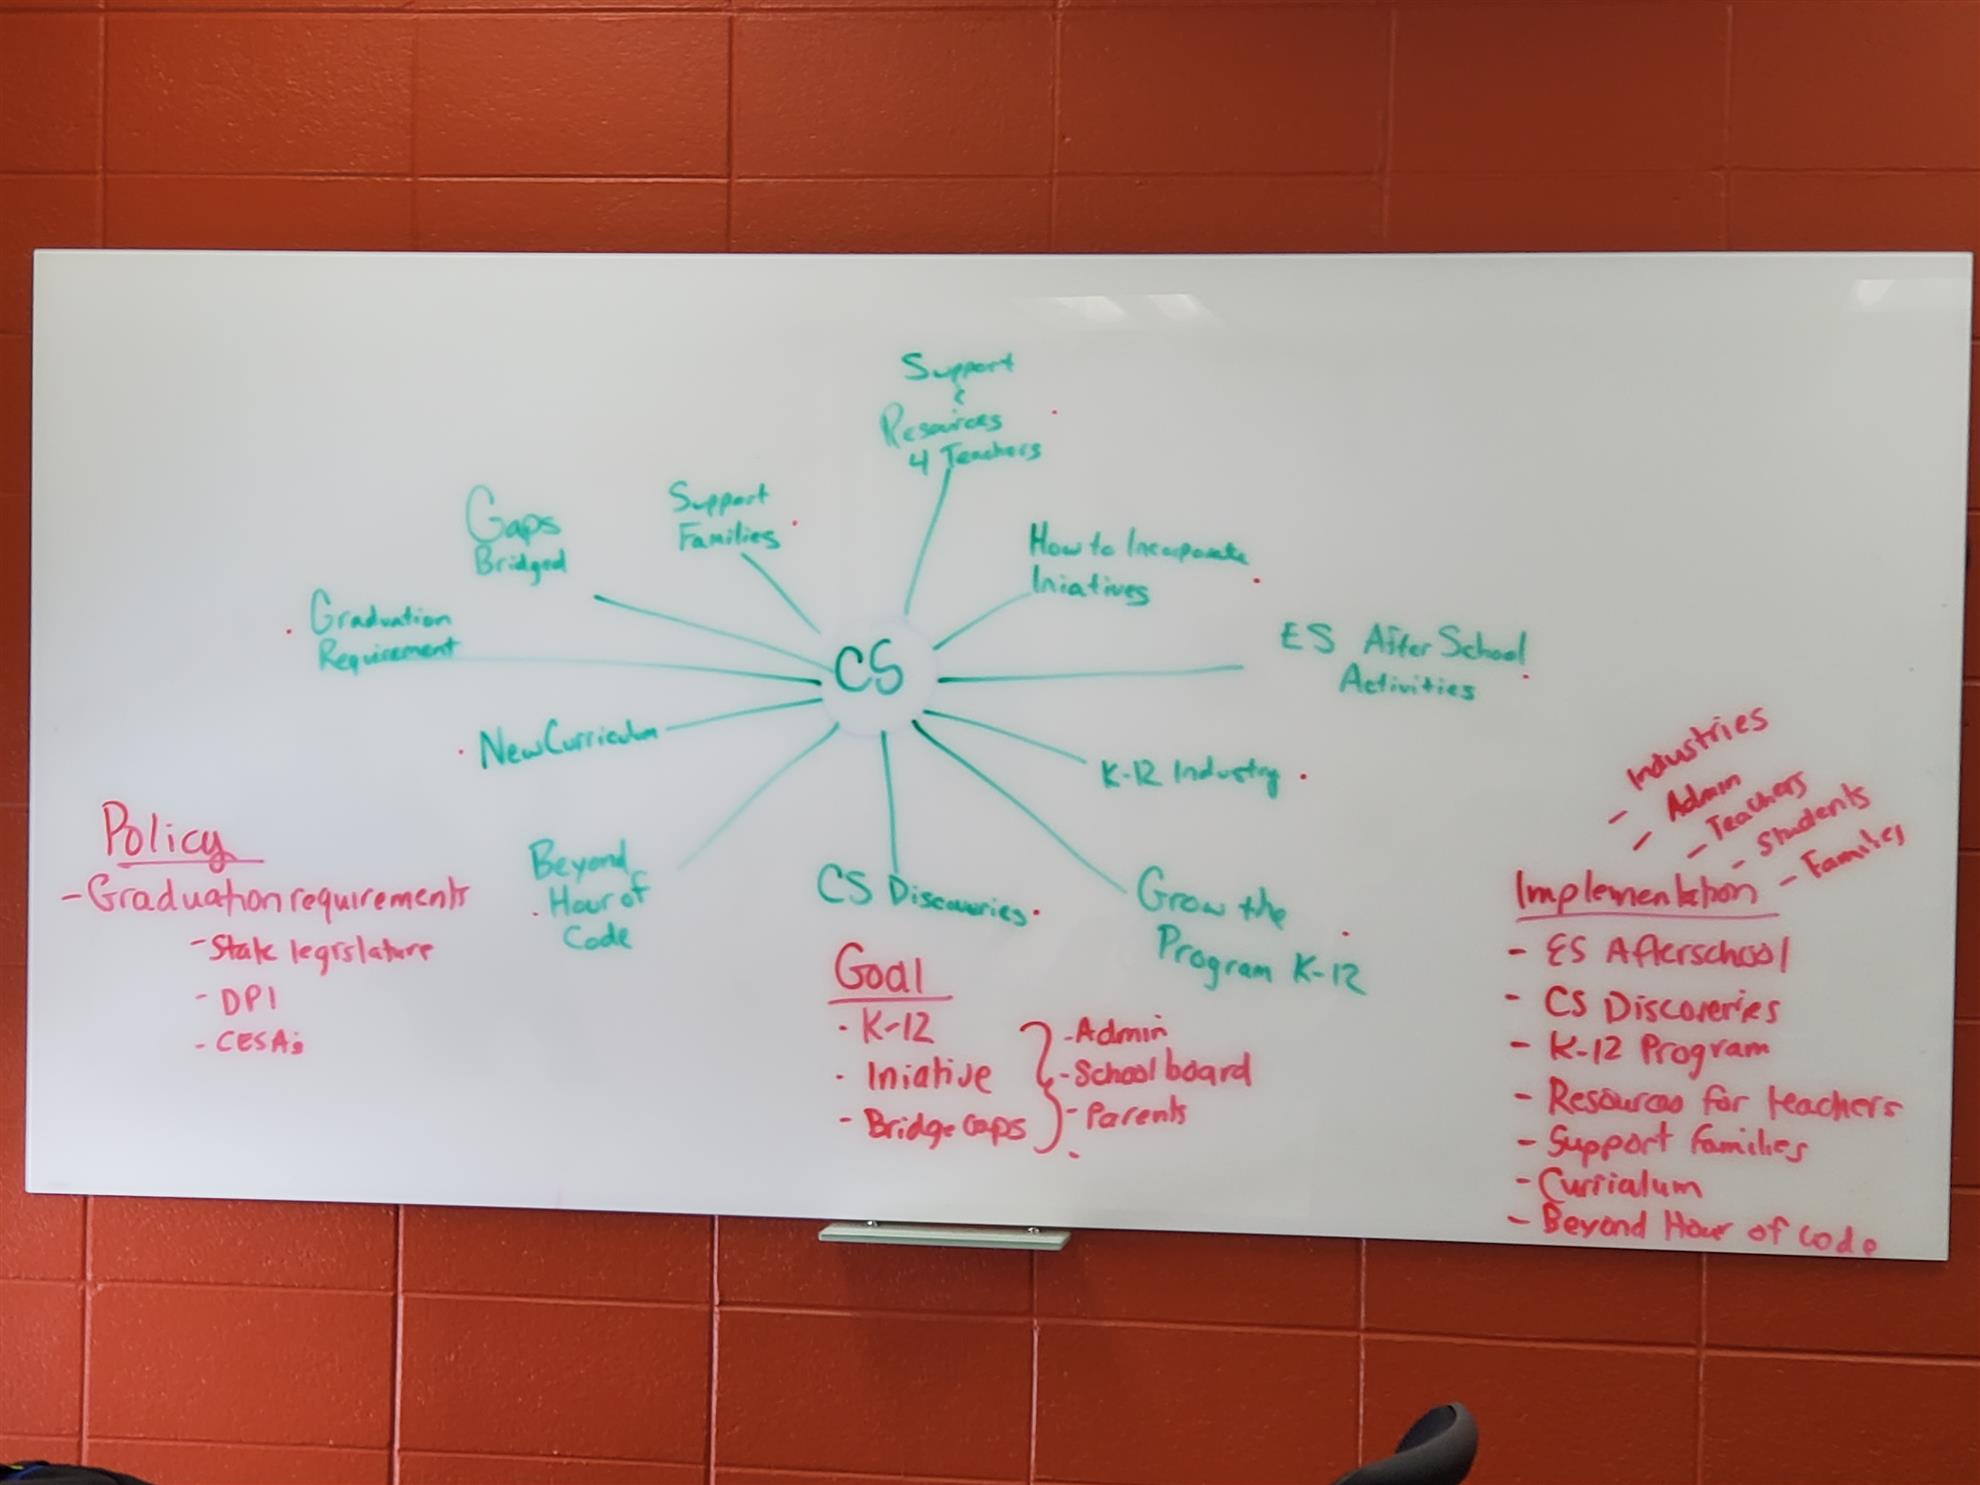 Support
&
Resources
4 Teachers
Gaps
Bridged
Support
Families
How to Incorporate
Iniatives
Graduation
Requirement
ES After School
Activities
CS
New Curriculum
K-12 Industry
Beyond
Hour of
Code
CS Discoveries
Grow the
Program K-12
Policy
- Graduation requirements
- State legislature
- DPI
- CESA's
Goal
- K-12
- Iniative
- Bridge Gaps
- Admin
- School board
- Parents
- Industries
- Admin
- Teachers
- Students
- Families
Implementation
- ES Afterschool
- CS Discoveries
- K-12 Program
- Resources for teachers
- Support families
- Curriculum
- Beyond Hour of code